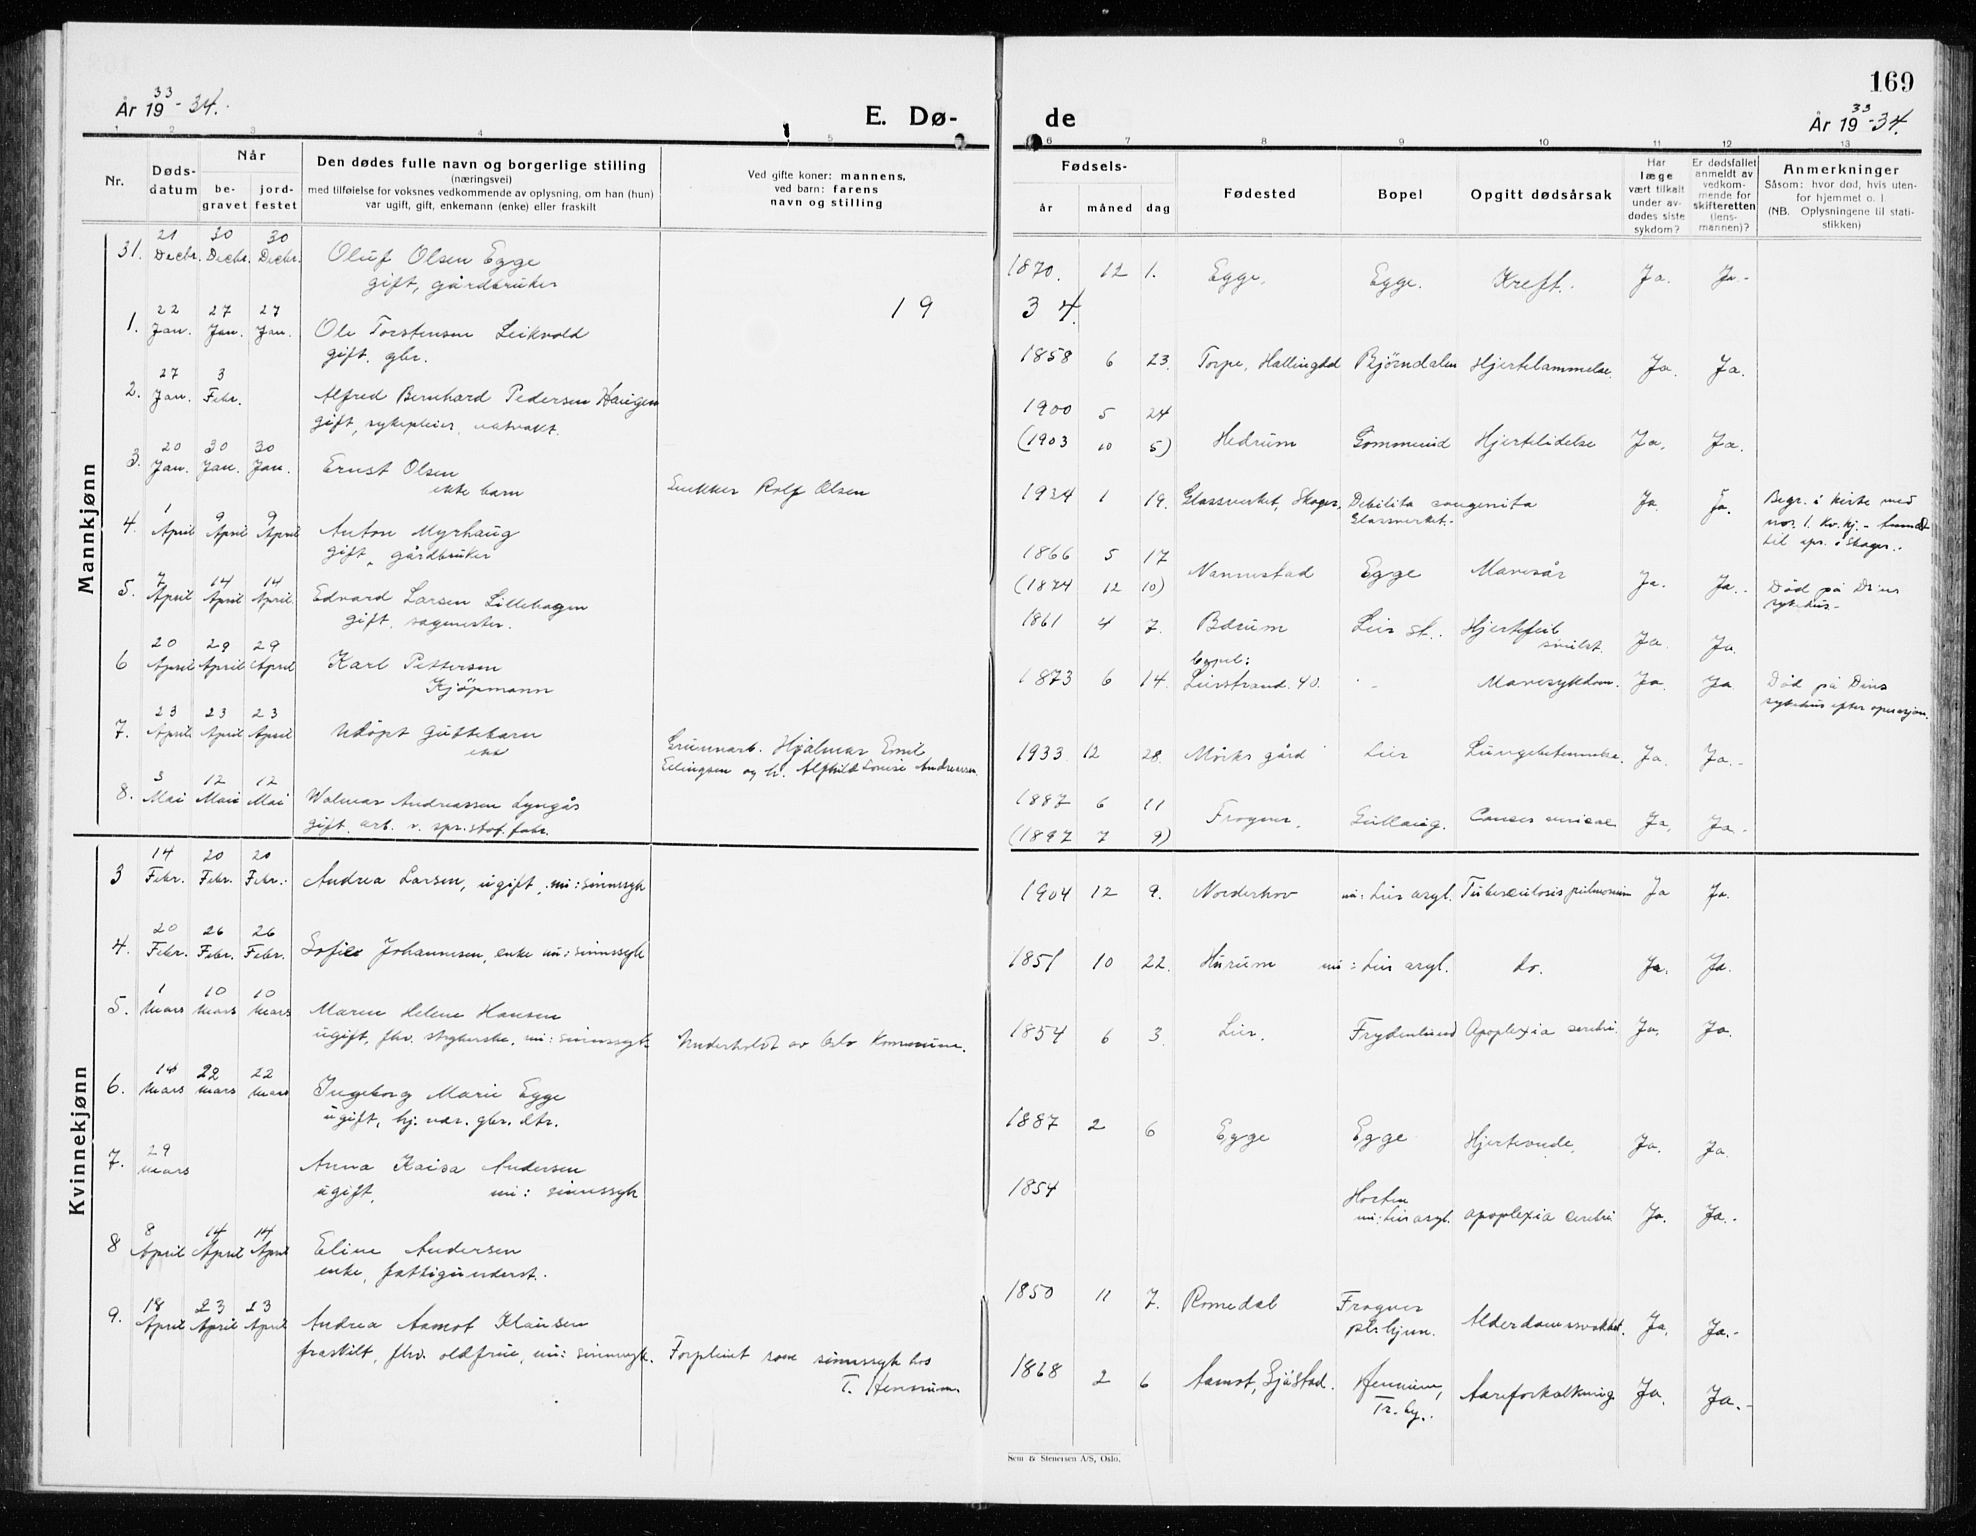 169
År 19 33-34.
E. Dø-
de
År 19 33-34.
1 2 3 4 5 6 7 8 9 10 11 12 13
Nr.
Døds-
datum
Når
be-
gravet
jord-
festet
Den dødes fulle navn og borgerlige stilling
(næringsvei)
med tilføielse for voksnes vedkommende av oplysning, om han (hun)
var ugift, gift, enkemann (enke) eller fraskilt
Ved gifte koner: mannens,
ved barn: farens
navn og stilling
Fødsels-
år måned dag
Fødested
Bopel
Opgitt dødsårsak
Har
læge
vært tilkalt
under av-
dødes siste
sykdom?
Er dødsfallet
anmeldt av
vedkom-
mende for
skifteretten
(lens-
mannen)?
Anmerkninger
Såsom: hvor død, hvis uten-
for hjemmet o. l.
(NB. Oplysningene til stati-
stikken)
Mannkjønn
31. 21 Decbr. 30 Decbr. 30 Decbr. Oluf Olsen Egge
gift, gårdbruker
1870. 12 1. Egge. Egge. Kreft. Ja. Ja.-
19 34.
1. 22 Jan. 27 Jan. 27 Jan. Ole Torstensen Leikvold
gift, gbr.
1858 6 23. Torpe, Hallingdal Bjørndalen Hjertelammelse. Ja. Ja.
2. 27 Jan. 3 Febr. Alfred Bernhard Pedersen Haugen
gift, sykepleier, natvakt.
1900 5 24
(1903 10 5) Hedrum Gommerud Hjertelidelse Ja, Ja.
3. 20 Jan. 30 Jan. 30 Jan. Ernst Olsen
ekte barn
Snekker Rolf Olsen
1934 1 19. Glassverket, Skoger, Debilita congenita
Glassverket.-
Ja. Ja.
Begr. i kiste med
nor. 1. Kv.kj. -
til i Skoger.
4. 1 April 9 April 9 April Anton Myrhaug
gift, gårdbruker
1866 5 17
(1874 12 10) Nannestad Egge Mavesår Ja. Ja.-
Død på D.ns
sykehus-
5. 7 April 14 April 14 April. Edvard Larsen Lillehagen
gift, sagmester.
1861 4 7. Bærum Lier st. Hjertefeil
Ja. Ja.
6 20 April 29 April 29 April Karl Pettersen
Kjøpmann
bopel:
1873 6 14. Lierstrand. 40. Mavesykdom. Ja. Ja
Død på D.ns
sykehus efter operasjon.
7. 23 April 23 April 23 April Udöpt guttebarn
ekte
Grunnarb. Hjalmar Emil
Ellingsen og h. Alfhild Louise Andreassen
1933 12 28. Mörks gård Lier Lungebetennelse. Ja. Ja.-
8. 3 Mai 12 Mai 12 Mai Walmar Andreassen Lyngås
gift. arb. v. spr.stof.fabr.
1887 6 11
(1897 7 9) Frogner, Gullaug. Ja, Ja-
Kvinnekjønn
3 14 Febr. 20 Febr. 20 Febr. Andrea Larsen, ugift, mi: sinnssyk
1904 12 9. Norderhov mi: Lier asyl. Tuberculosis pulmonum Ja Ja.
4. 20 Febr. 26 Febr. 26 Febr. Sofie Johannesen, enke mi: sinnssyk
1851 10 22. Hurum mi: Lier asyl. do. Ja. Ja.
5. 1 Mars 10 Mars 10 Mars Maren Helene Hansen
ugift, fhv. strykerske, mi: sinnssyk.
Underholdt av Oslo Kommune.
1854 6 3. Lier. Frydenlund Apoplexia cerebri. Ja, Ja.
6. 14 Mars 22 Mars 22 Mars Ingeborg Marie Egge
ugift, hj. vær. gbr. dtr.
1887 2 6 Egge Egge Hjerteonde. Ja. Ja.
7. 29 Mars Anna Kaisa Andersen
ugift, mi: sinnssyk
1854 Horten
mi: Lier asyl. apoplexia cerebri Ja. Ja.-
8 8 April 14 April 14 April Eline Andersen
enke, fattigunderst.
1850 11 7. Romedal Frogner
pl.hjem. Alderdomssvakhet. Ja, Ja.-
9. 18 April 23 April 23 April Andrea Aamot Klausen
fraskilt, fhv. oldfrue, mi: sinnssyk.
Forpleiet som sinnssyk hos
T. Hennum.
1868 2 6 Aamot, Sjåstad. Hennum,
Tr.by.. Aareforkalkning Ja. Ja.-
Sem & Stenersen A/S, Oslo.